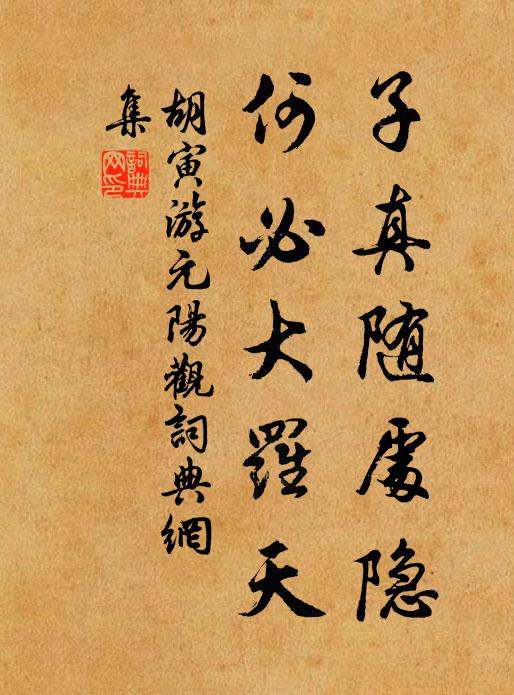 子真随處隐
何必大羅天
胡寅游元陽觀詞典網
集
詞典
网印